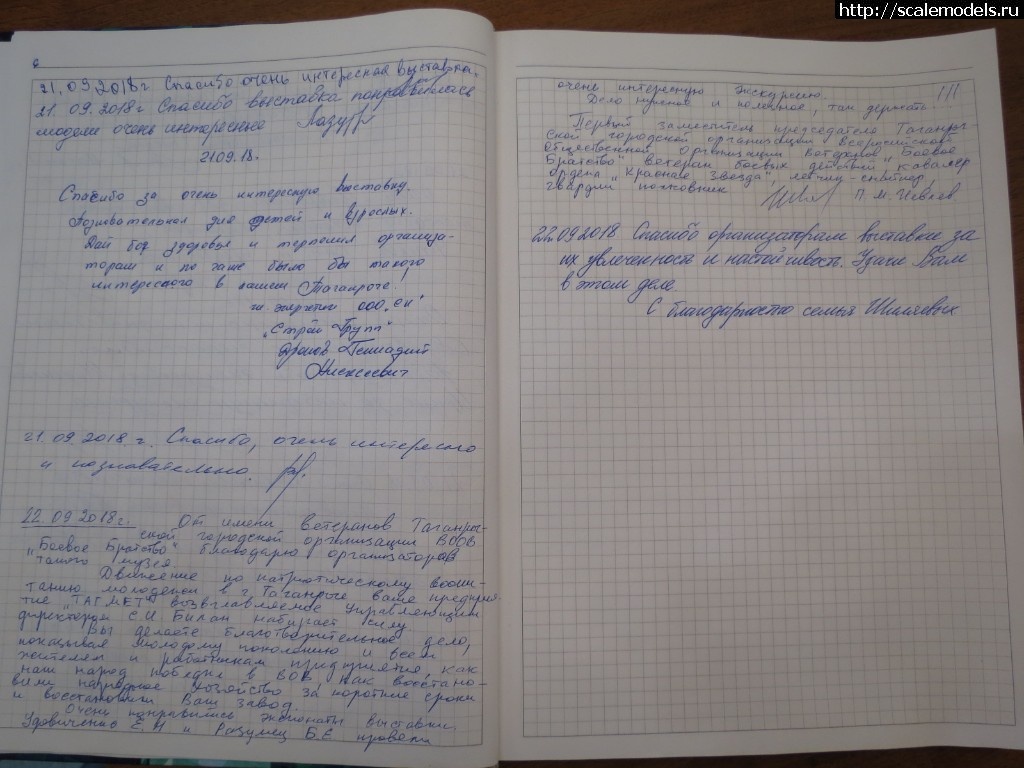 http://scalemodels.ru
6
21.09.2018г Спасибо очень интересная выставка.
21.09.2018г Спасибо выставка понравилась
модели очень интересные
2109.18.
Спасибо за очень интересную выставку.
Познавательная для детей и взрослых.
Дай бог здоровья и терпения организа-
торам и по чаще было бы такого
интересного в нашем Таганроге
ООО "СК
"Строй Групп"
Геннадий
Алексеевич
21.09.2018 г. Спасибо, очень интересно
и познавательно.
22.09.2018г. От имени Ветеранов Таганро-
ской городской организации ВООВ
"Боевое Братство" благодарю организаторов
такого музея.
Движение по патриотическому воспи-
танию молодежи в г. Таганроге ваше предприя-
тие "ТАГМЕТ" возглавляемое Управляющим
директором С.И. Билан набирает силу.
Вы делаете благотворительное дело,
показывая молодому поколению и всем
жителям и работникам предприятия как
наш народ победил в ВОВ. Как восстано-
вили народное хозяйство за короткие сроки
и восстановили Ваш завод.
Очень понравились экспонаты выставки.
Удовиченко Е.Н и Разумец Б.Е провели
очень интересную экскурсию.
Дело нужное и полезное, так держать !!!
Первый заместитель председателя Таганро
ской городской организации Всероссийской
Общественной Организации Ветеранов "Боевое
Братство" ветеран боевых действий кавалер
ордена "Красная Звезда" летчик-снайпер
гвардии полковник П.М.
22.09.2018 Спасибо организаторам выставки за
их увлеченность и настойчивость. Удачи Вам
в этом деле.
С благодарностью семья